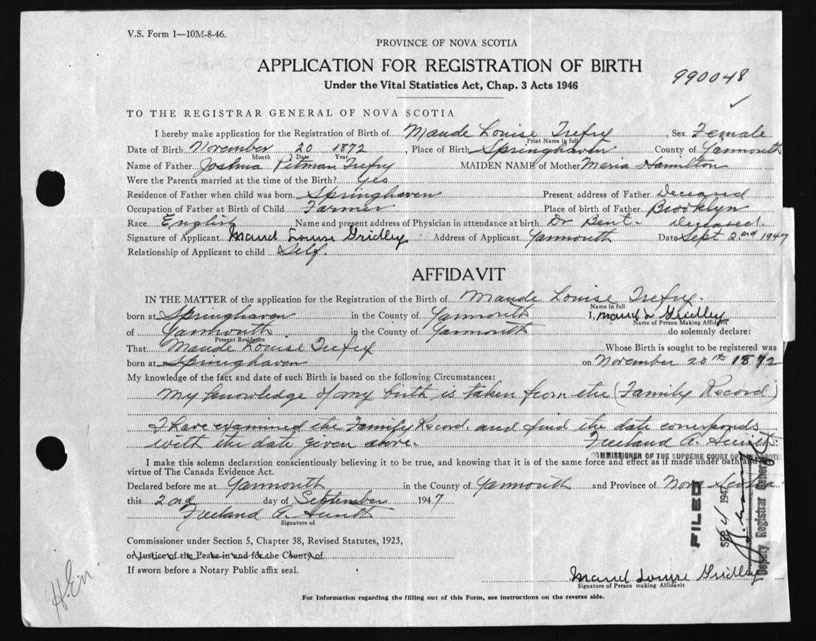 V.S. Form 1—10M-8-46.
PROVINCE OF NOVA SCOTIA
APPLICATION FOR REGISTRATION OF BIRTH
Under the Vital Statistics Act, Chap. 3 Acts 1946
990048
TO THE REGISTRAR GENERAL OF NOVA SCOTIA
I hereby make application for the Registration of Birth of Maude Louise Trefry, Sex Female
Print Name in full
Date of Birth November 20 1872, Place of Birth Springhaven County of Yarmouth
Month Date Year
Name of Father Joshua Pitman Trefry MAIDEN NAME of Mother Maria Hamilton
Were the Parents married at the time of the Birth? Yes
Residence of Father when child was born Springhaven Present address of Father Deceased
Occupation of Father at Birth of Child Farmer Place of birth of Father Brooklyn
Race English Name and present address of Physician in attendance at birth Dr Bent. deceased.
Signature of Applicant Maud Louise Gridley Address of Applicant Yarmouth Date Sept 2nd 1947
Relationship of Applicant to child Self.
AFFIDAVIT
IN THE MATTER of the application for the Registration of the Birth of Maude Louise Trefry.
Name in full
born at Springhaven in the County of Yarmouth I, Maud L Gridley
Name of Person Making Affidavit
of Yarmouth in the County of Yarmouth do solemnly declare:
Present Residence
That Maude Louise Trefry Whose Birth is sought to be registered was
born at Springhaven on November 20th 1872
My knowledge of the fact and date of such Birth is based on the following Circumstances:
My knowledge of my birth is taken from the (Family Record)
I have examined the Family Record and find the date corresponds
with the date given above. Freeland A.
COMMISSIONER OF THE SUPREME COURT OF
I make this solemn declaration conscientiously believing it to be true, and knowing that it is of the same force and effect as if made under oath
virtue of The Canada Evidence Act.
Declared before me at Yarmouth in the County of Yarmouth and Province of Nova Scotia
this 2nd day of September 1947
Freeland A.
Signature of
Commissioner under Section 5, Chapter 38, Revised Statutes, 1923,
or Justice of the Peace in and for the County of
If sworn before a Notary Public affix seal.
FILED
SEP 4 1947
Deputy Registrar General
Maud Louise Gridley
Signature of Person making Affidavit
For Information regarding the filling out of this Form, see instructions on the reverse side.